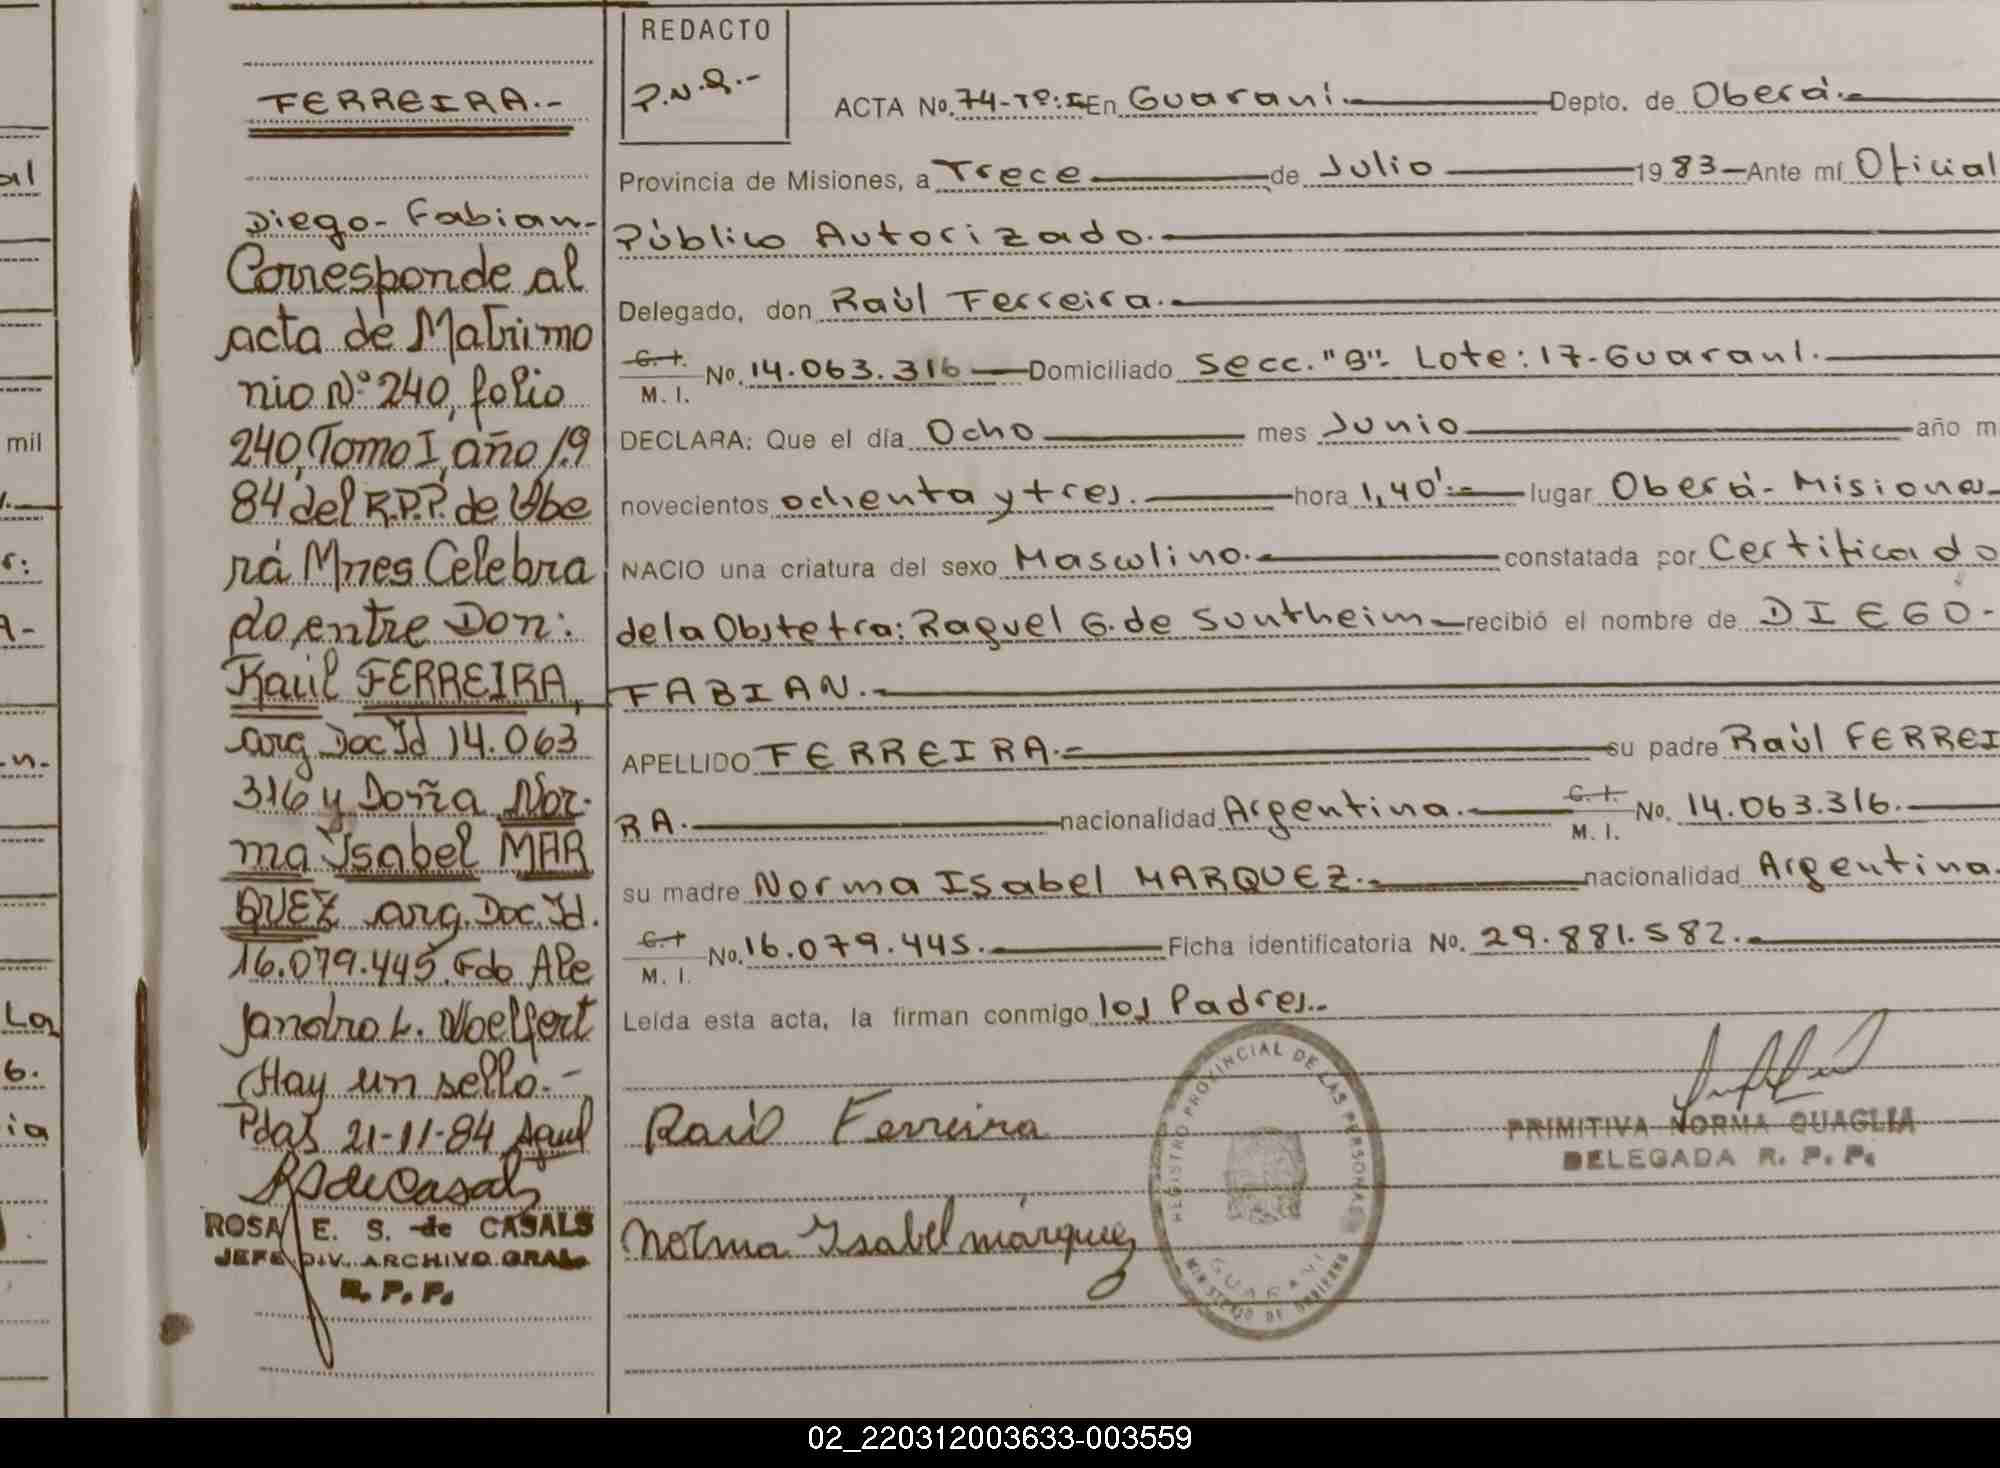 FERREIRA.-
Diego-Fabian-
Corresponde al
acta de Matrimo
nio Nº 240, folio
240, Tomo I, año 19
84 del R.P.P. de Obe
rá Mnes Celebra
do entre Don:
Raúl FERREIRA,
arg Doc Id 14.063
316 y Doña Nor-
ma Ysabel MAR
QUEZ arg. Doc. Id.
16.079.445 Fdo Ale
jandro L.
Hay un sello.-
Pdas 21-11-84
RS de Casals
ROSA E. S. de CASALS
JEFE DIV. ARCHIVO GRAL.
R. P. P.
REDACTO
P.N.Q.-
ACTA No. 74-Tº:I En Guaraní.- Depto. de Oberá.-
Provincia de Misiones, a Trece de Julio 1983 Ante mí Oficial
Público Autorizado.-
Delegado, don Raúl Ferreira.-
C. I. M. I. No. 14.063.316 Domiciliado Secc. "9". Lote: 17-Guaraní.-
DECLARA: Que el día Ocho mes Junio año m
novecientos ochenta y tres. hora 1,40'.- lugar Oberá-Misiones
NACIO una criatura del sexo Masculino.- constatada por Certificado
de la Obstetra: Raquel G. de Suntheim recibió el nombre de DIEGO-
FABIAN.-
APELLIDO FERREIRA.- su padre Raúl FERREI
RA. nacionalidad Argentina.- C. I. M. I. No. 14.063.316.-
su madre Norma Isabel MARQUEZ.- nacionalidad Argentina.
C. I M. I. No. 16.079.445.- Ficha identificatoria No. 29.881.582.-
Leída esta acta, la firman conmigo los Padres.-
REGISTRO PROVINCIAL DE LAS PERSONAS
GUARANI
MINISTERIO DE GOBIERNO
Raúl Ferreira
PRIMITIVA NORMA QUAGLIA
DELEGADA R. P. P.
Norma Ysabel márquez
al
mil
r:
A-
n.
La
6.
ia
02_220312003633-003559